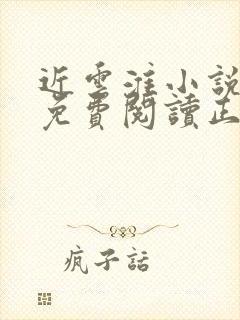 近雲淮小說
免費閱讀正
瘋子話